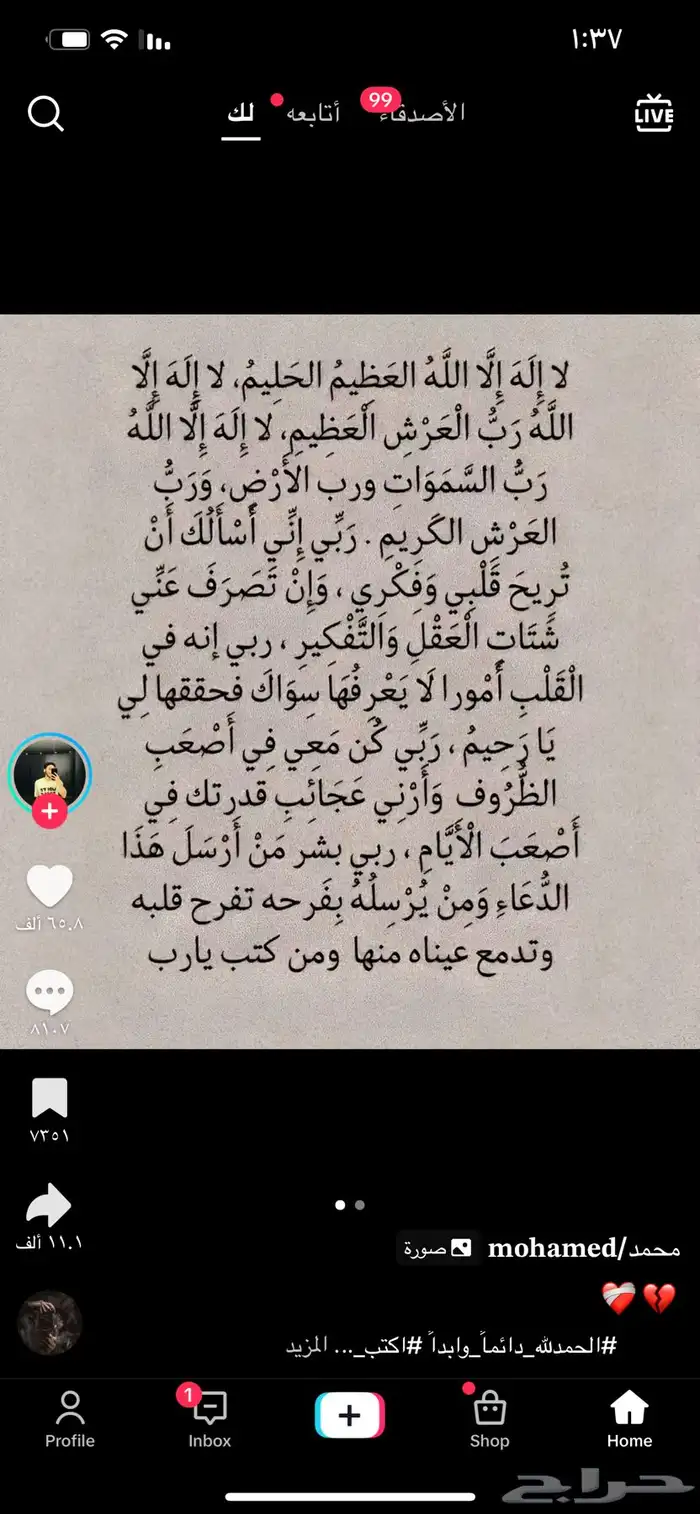 ١:٣٧
LIVE
الأصدقاء 99 أتابعه لك
لا إِلَهَ إِلَّا اللَّهُ العَظِيمُ الحَلِيمُ، لا إِلَهَ إِلَّا
اللَّهُ رَبُّ الْعَرْشِ الْعَظِيمِ، لا إِلَهَ إِلَّا اللَّهُ
رَبُّ السَّمَوَاتِ ورب الأَرْضِ، وَرَبُّ
العَرْشِ الكَرِيمِ . رَبِّي إِنِّي أَسْأَلُكَ أَنْ
تُرِيحَ قَلْبِي وَفَكْرِي ، وَإِنْ تَصَرَفَ عَنِّي
شَتَاتِ الْعَقْلِ وَالتَّفْكِيرِ ، ربي إنه في
الْقَلْبِ أَمْورا لَا يَعْرِفُهَا سِوَاكَ فحققها لِي
يَا رَحِيمُ ، رَبِّي كُن مَعِي فِي أَصْعَبِ
الظُّرُوف وَأَرْنِي عَجَائِبِ قدرتك فِي
أَصْعَبَ الْأَيَّامِ ، ربي بشر مَنْ أَرْسَلَ هَذَا
الدُّعَاءِ وَمِنْ يُرْسِلُهُ بِفَرحه تفرح قلبه
وتدمع عيناه منها ومن كتب يارب
٦٥.٨ ألف
٨١٠٧
٧٣٥١
١١.١ ألف
محمد/mohamed صورة
💔❤️‍🩹
#الحمدلله_دائماً_وابداً #اكتب_... المزيد
Profile
1
Inbox
Shop
Home
حراج